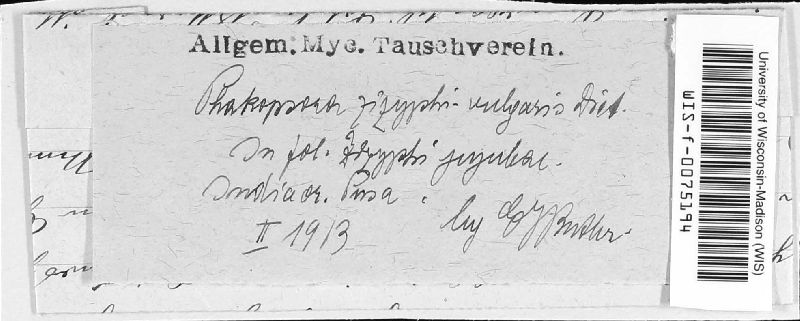 Allgem. Myc. Tauschverein.
Phakopsora Zizyphi-vulgaris Diet.
In fol. Zizyphi jujubae.
India or. Pusa.
II 1913 leg EJ Butler.
University of Wisconsin-Madison (WIS)
WIS-f-0075194